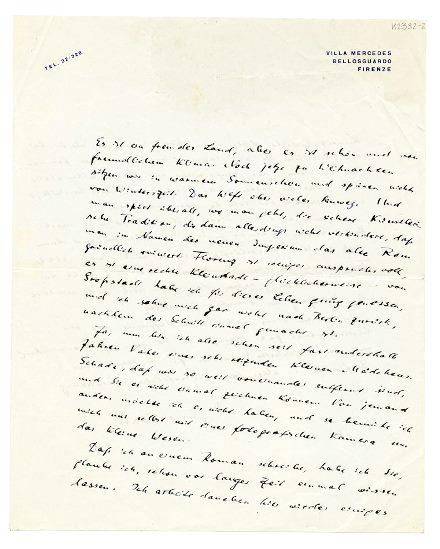 K2332-2
TEL. 22-288
VILLA MERCEDES
BELLOSGUARDO
FIRENZE
Es ist ein fremdes Land, aber es ist schön und von
freundlichem Klima. Noch jetzt zu Weihnachten
sitzen wir in warmem Sonnenschein und spüren nichts
von Winterzeit. Das hilft über vieles hinweg. Und
man spürt überall, wo man geht, die sichere künstleri-
sche Tradition, die dann allerdings nicht verhindert, daß
man im Namen des neuen Imperium das alte Rom
gründlich ruiniert. Florenz ist weniger anspruchsvoll,
es ist eine rechte Kleinstadt – glücklicherweise – von
Großstadt habe ich für dieses Leben genug genossen,
und ich sehne mich gar nicht nach Berlin zurück,
nachdem der Schnitt einmal gemacht ist.
Ja, nun bin ich also schon seit fast anderthalb
Jahren Vater eines sehr reizenden kleinen Mädchens.
Schade, daß wir so weit voneinander entfernt sind,
und Sie es nicht einmal zeichnen können. Von jemand
anders möchte ich es nicht haben, und so bemühe ich
mich nun selbst mit einer fotografischen Kamera um
das kleine Wesen.
Daß ich an einem Roman schreibe, habe ich Sie,
glaube ich, schon vor langer Zeit einmal wissen
lassen. Ich arbeite daneben hier wieder einiges